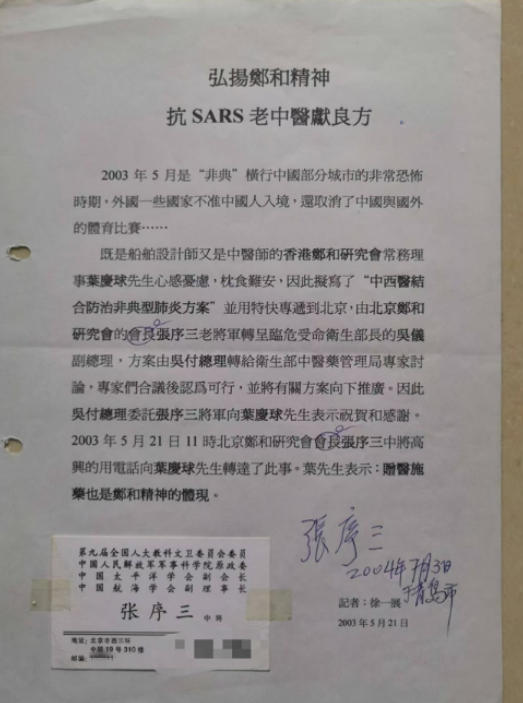 弘揚鄭和精神
抗 SARS 老中醫獻良方
2003 年 5 月是“非典”橫行中國部分城市的非常恐怖
時期，外國一些國家不准中國人入境，還取消了中國與國外
的體育比賽……
既是船舶設計師又是中醫師的香港鄭和研究會常務理
事葉慶球先生心感憂慮，枕食難安，因此擬寫了“中西醫結
合防治非典型肺炎方案”並用特快專遞到北京，由北京鄭和
研究會的會長張序三老將軍轉呈臨危受命衛生部長的吳儀
副總理，方案由吳付總理轉給衛生部中醫藥管理局專家討
論，專家們合議後認爲可行，並將有關方案向下推廣。因此
吳付總理委託張序三將軍向葉慶球先生表示祝賀和感謝。
2003 年 5 月 21 日 11 時北京鄭和研究會會長張序三中將高
興的用電話向葉慶球先生轉達了此事。葉先生表示：贈醫施
藥也是鄭和精神的體現。
張序三
2004年7月3日
于青島市
記者：徐一展
2003 年 5 月 21 日
第九届全国人大教科文卫委员会委员
中国人民解放军军事科学院原政委
中国太平洋学会副会长
中国航海学会副理事长
张序三 中将
地址：北京市西三环
中路 19 号 310 楼
邮编：